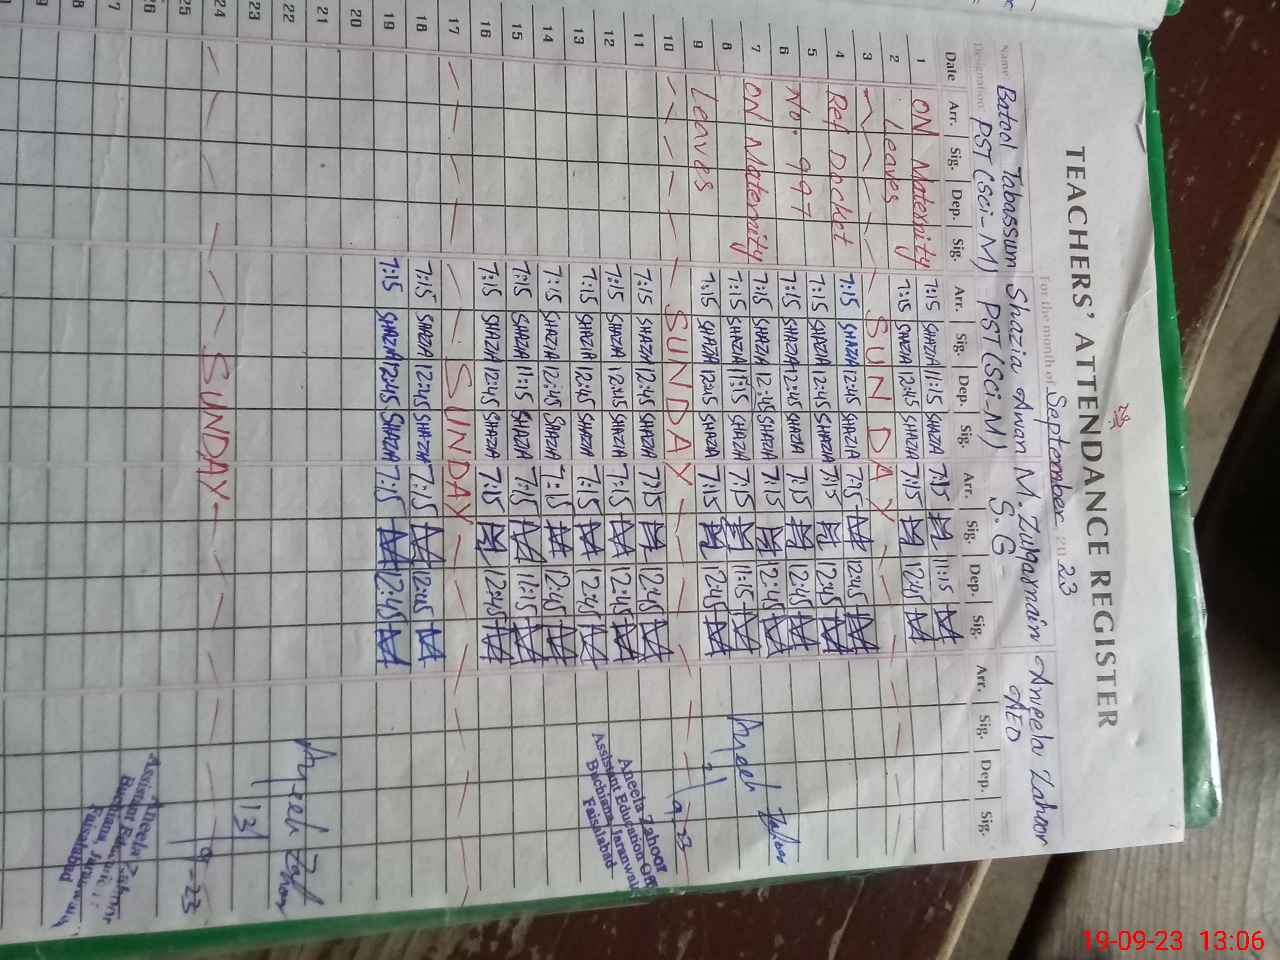 TEACHERS' ATTENDANCE REGISTER
For the month of September 2023
Name Batool Tabassum Shazia Awan M. Zulqarnain Aneela Zahoor
Designation PST (Sci-M) PST (Sci-M) S.G AEO
Date Arr. Sig. Dep. Sig. Arr. Sig. Dep. Sig. Arr. Sig. Dep. Sig. Arr. Sig. Dep. Sig.
1 ON Maternity 7:15 SHAZIA 11:15 SHAZIA 7:15 11:15
2 Leaves 7:15 SHAZIA 12:45 SHAZIA 7:15 12:45
3 SUNDAY
4 Ref Docket 7:15 SHAZIA 12:45 SHAZIA 7:15 12:45
5 7:15 SHAZIA 12:45 SHAZIA 7:15 12:45
6 No. 997 7:15 SHAZIA 12:45 SHAZIA 7:15 12:45
7 ON Maternity 7:15 SHAZIA 12:45 SHAZIA 7:15 12:45
8 7:15 SHAZIA 11:15 SHAZIA 7:15 11:15 Aneela Zahoor
9 Leaves 7:15 SHAZIA 12:45 SHAZIA 7:15 12:45
10 SUNDAY
11 7:15 SHAZIA 12:45 SHAZIA 7:15 12:45
12 7:15 SHAZIA 12:45 SHAZIA 7:15 12:45
13 7:15 SHAZIA 12:45 SHAZIA 7:15 12:45
14 7:15 SHAZIA 12:45 SHAZIA 7:15 12:45
15 7:15 SHAZIA 11:15 SHAZIA 7:15 11:15
16 7:15 SHAZIA 12:45 SHAZIA 7:15 12:45
Aneela Zahoor
Assistant Education Off
Buchiana, Jaranwala
Faisalabad
17 SUNDAY
18 7:15 SHAZIA 12:45 SHAZIA 7:15 12:45
19 7:15 SHAZIA 12:45 SHAZIA 7:15 12:45
20
21
22 Aneela Zahoor
23
24 SUNDAY
25
26
27
28
Faisalabad
19-09-23 13:06